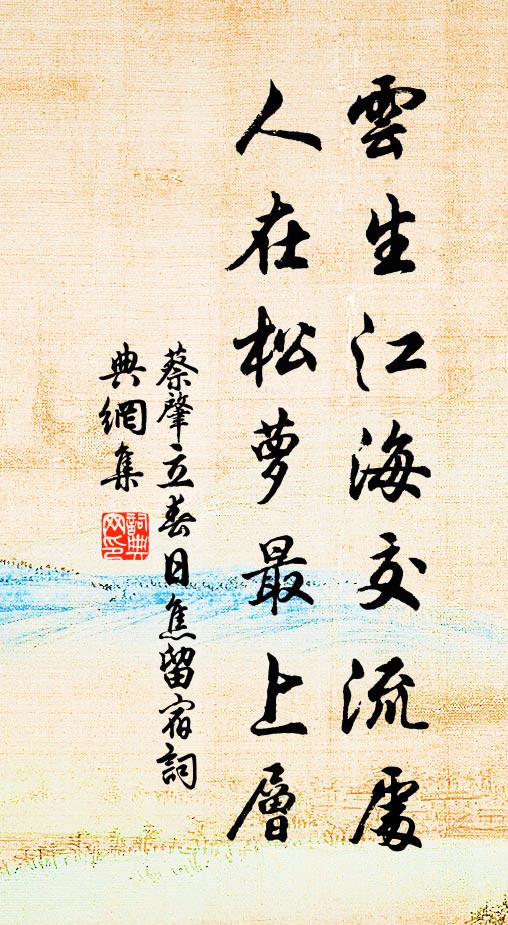 雲生江海交流處
人在松萝最上層
蔡肇立春日焦留宿詞
典網集
詞典
网印